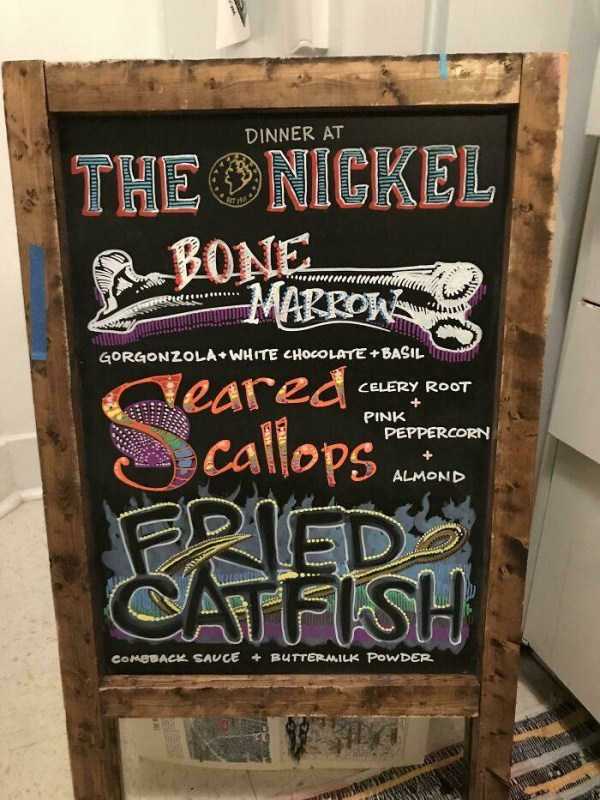 DINNER AT
THE NICKEL
BONE
MARROW
GORGONZOLA + WHITE CHOCOLATE + BASIL
Seared
Scallops
CELERY ROOT
+
PINK
PEPPERCORN
+
ALMOND
FRIED
CATFISH
COMEBACK SAUCE + BUTTERMILK POWDER